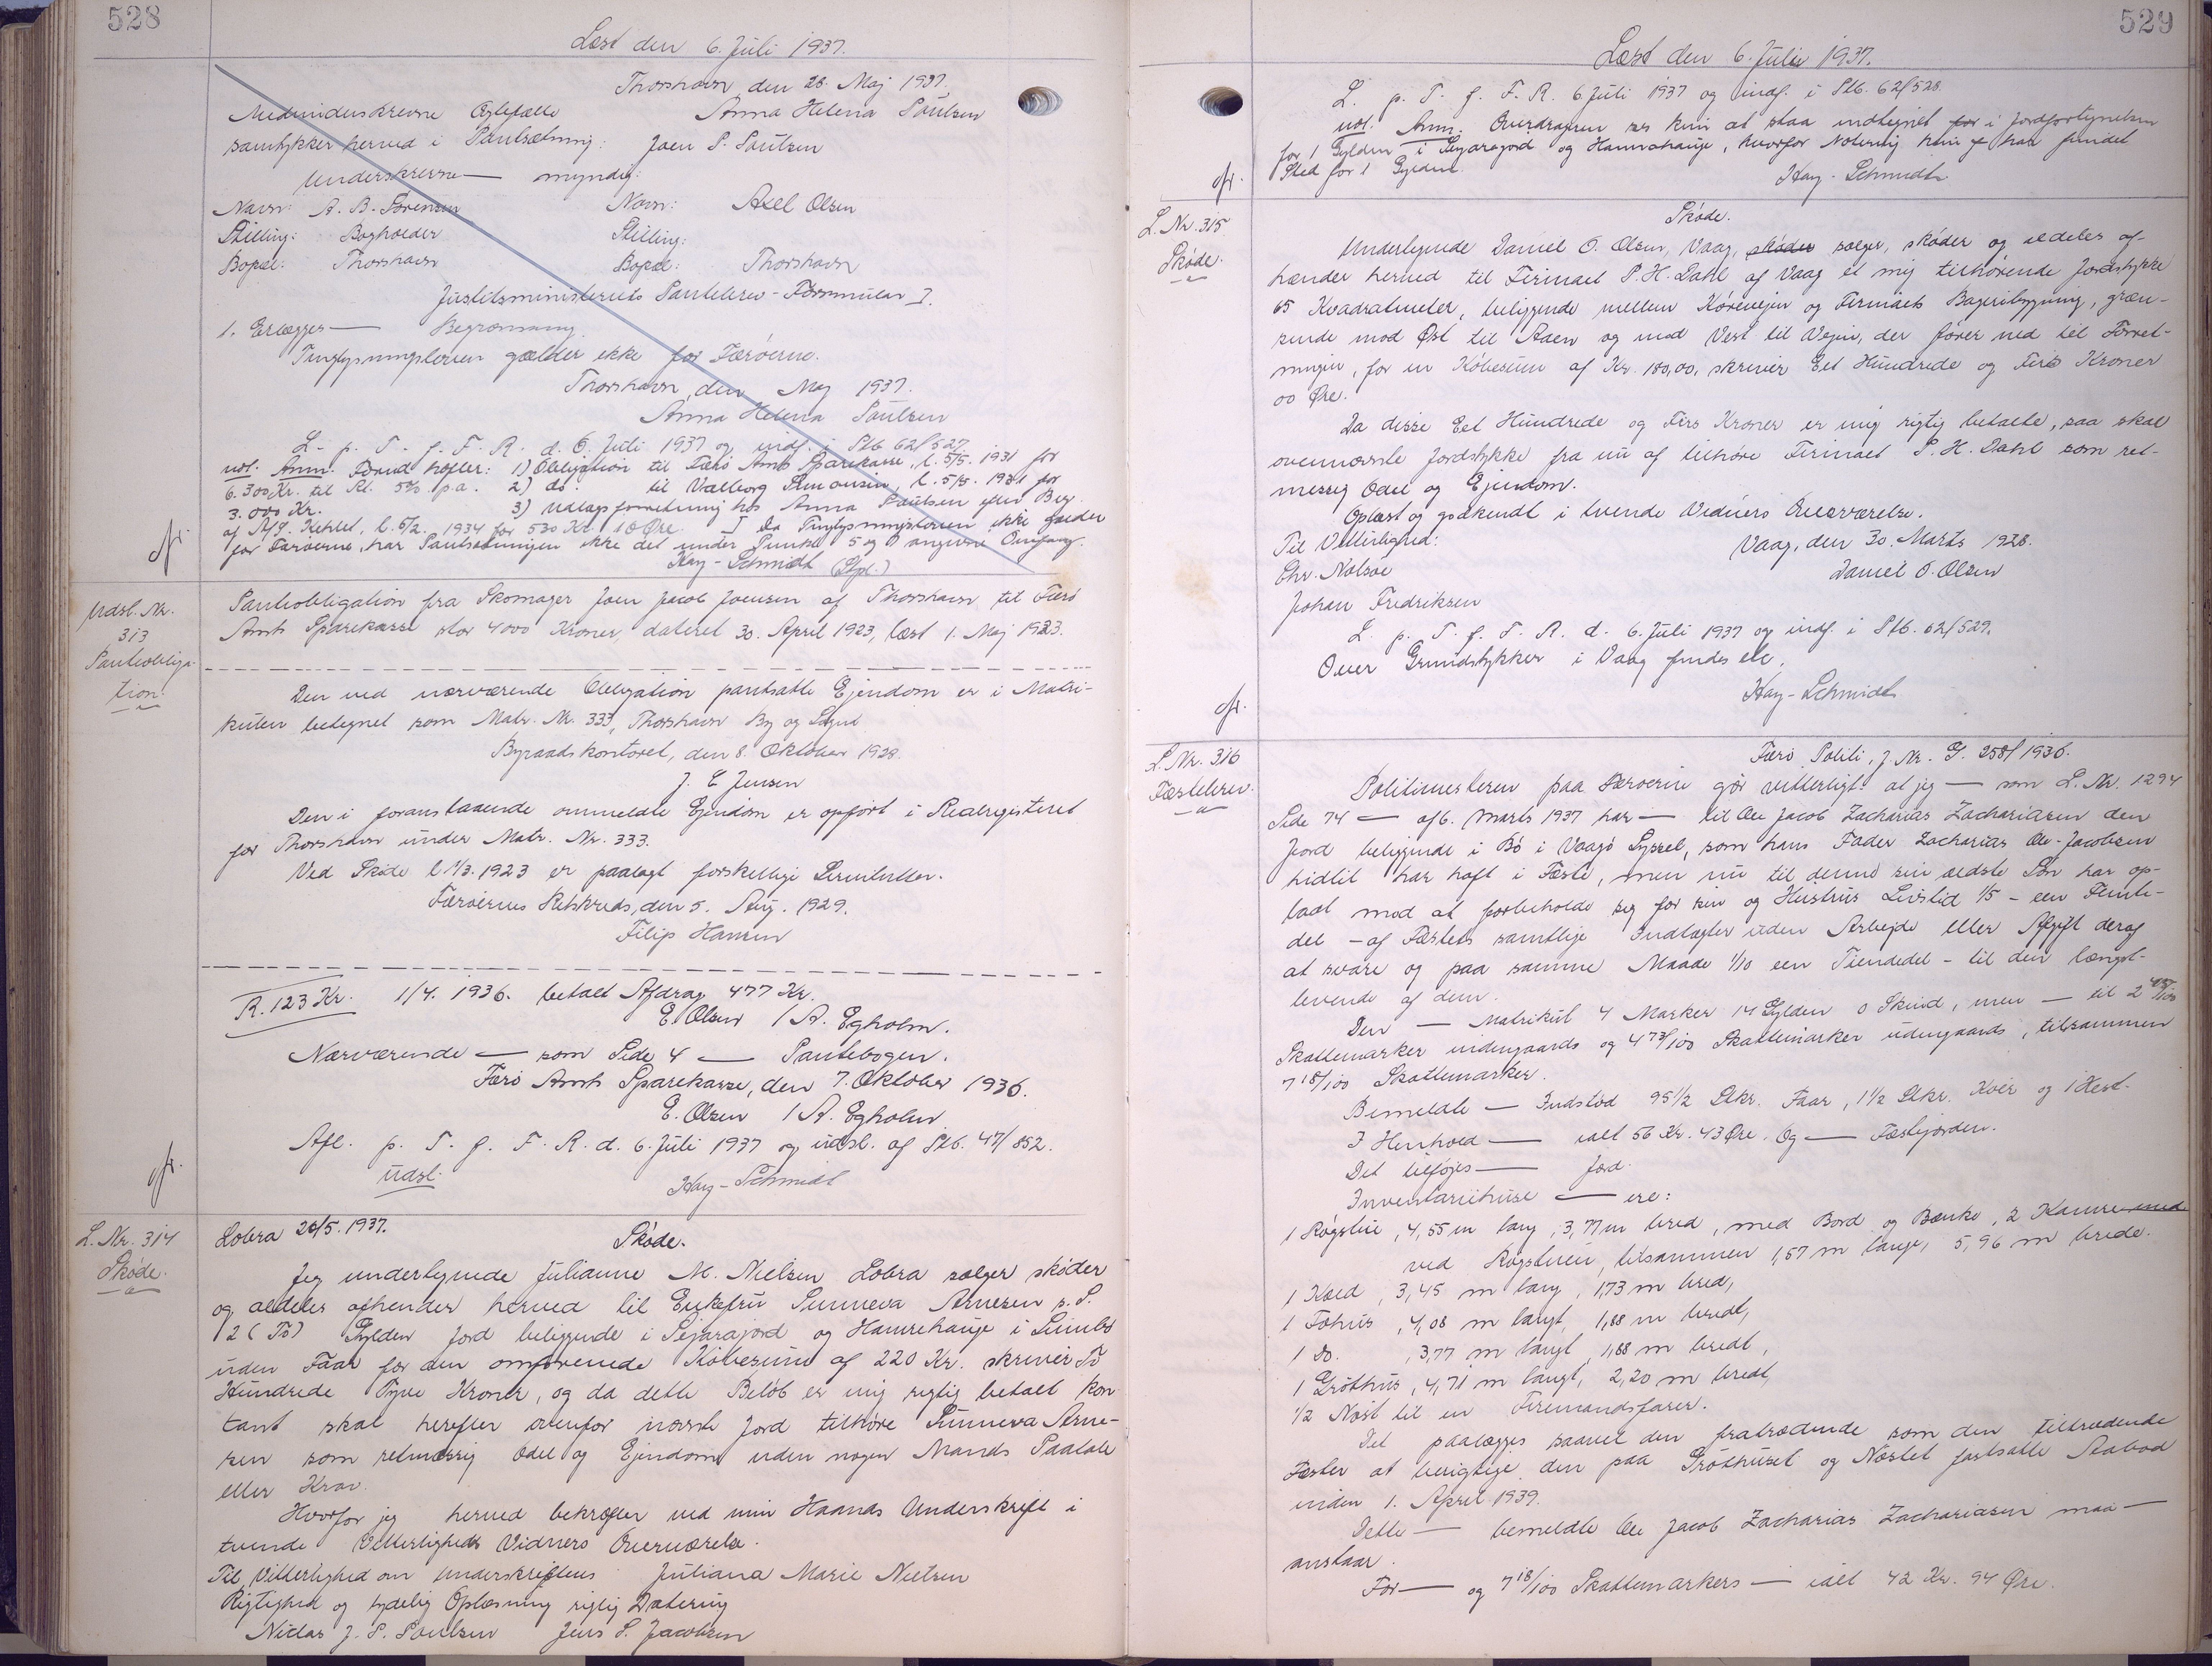 528
Læst den 6. Juli 1937.
Thorshavn, den 28. Maj 1937.
Medunderskrevne Ægtefælle Anna Helena Poulsen
samtykker herved i Pantsætning: Joen P. Poulsen
Underskrevne — myndig:
Navn: A. B. Sørensen Navn: Axel Olsen
Stilling: Bogholder Stilling:
Bopæl: Thorshavn Bopæl: Thorshavn
Justitsministeriets Pantebrev-Formular I.
1. Erlægges — Begrænsning.
Tinglysningsloven gælder ikke for Færøerne.
Thorshavn, den Maj 1937.
Anna Helena Poulsen
L. p. T. f. F. R. d. 6. Juli 1937 og indf. i Ptb 62/527
udl. Anm. Forud hæfter: 1) Obligation til Færø Amts Sparekasse, l. 5/5. 1931 for
6.300 Kr. til Rt. 5% p.a. 2) do. til Valborg Simonsen, l. 5/5. 1931 for
3.000 Kr. 3) Udlægsforretning hos Anna Poulsen efter Beg.
af A/S. Kehlet, l. 6/2. 1934 for 530 Kr. 10 Øre. I Da Tinglysningsloven ikke gælder
for Færøerne, har Pantsætningen ikke det under Punkt 5 og angivne Omfang.
Kay-Schmidt (Stpl.)
cfr.
Udsl. Nr.
313
Pantobliga-
tion
Pantobligation fra Skomager Joen Jacob Joensen af Thorshavn til Færø
Amts Sparekasse stor 4000 Kroner, dateret 30. April 1923, læst 1. Maj 1923.
Den ved nærværende Obligation pantsatte Ejendom er i Matri-
kulen betegnet som Matr. Nr. 333, Thorshavn By og Sogn
Byraadskontoret, den 8. Oktober 1928.
J. C Jensen
Den i foranstaaende ommeldte Ejendom er opført i Realregisteret
for Thorshavn under Matr. Nr. 333.
Ved Skøde l 1/3. 1923 er paalagt forskellige Servitutter.
Færøernes Retskreds, den 5. Aug. 1929.
Filip Hansen
R. 123 Kr. 1/4. 1936. betalt Afdrag 477 Kr.
E. Olsen / A. Egholm.
Nærværende — som Side 4 — Pantebogen.
Færø Amts Sparekasse, den 7. Oktober 1936.
E. Olsen / A. Egholm
Afl. p. T. f. F. R. d. 6. Juli 1937 og udsl. af Ptb. 47/852.
udsl. Kay-Schmidt
cfr.
L. Nr. 314
Skøde.
Lobra 26/5. 1937. Skøde.
Jeg undertegnede Julianne M. Nielsen Lobra sælger skøder
og aldeles afhender herved til Enkefru Sunneva Arnesen s. S.
2 (To) Gylden Jord beliggende i Sejarajord og Hamrehauje i Sumbø
uden Faar for den omførenede Købesum af 220 Kr. skriver To
Hundrede Tyve Kroner, og da dette Beløb er mig rigtig betalt kon
tant skal herefter ovenfor nævnte Jord tilhøre Sunneva Arne-
sen som retmæssig Odel og Ejendom uden nogen Mands Paatale
eller Krav.
Hvorfor jeg herved bekræfter ved min Haands Underskrift i
tvende Vitterligheds Vidners Overværelse.
Til Vitterlighed om Underskriftens Juliana Marie Nielsen
Rigtighed og tydelig Oplæsning rigtig Datering
Niclas J. P. Poulsen Jens S. Jacobsen
529
Læst den 6. Juli 1937.
L. p. T. f. F. R. 6 Juli 1937 og indf. i Ptb. 62/528.
udl. Anm. Overdrageren ses kun at staa indtegnet for i Jordfortegnelsen
for 1 Gylden i Sejarajord og Hamrahauje, hvorfor Notering kun har fundet
Sted for 1 Gylden.
Kay-Schmidt
cfr.
L. Nr. 315
Skøde.
Skøde.
Undertegnede Daniel O. Olsen, Vaag, skøder sælger, skøder og aldeles af-
hænder herved til Firmaet P. H. Dahl af Vaag et mig tilhørende Jordstykke
65 Kvadratmeter, beliggende mellem Kørevejen og Firmaets Bageribygning, græn-
sende mod Øst til Aaen og mod Vest til Vejen, der fører ned til Forret-
ningen, for en Købesum af Kr. 180,00, skriver Eet Hundrede og Firs Kroner
00 Øre.
Da disse Eet Hundrede og Firs Kroner er mig rigtig betalte, saa skal
ovennævnte Jordstykke fra nu af tilhøre Firmaet P. H. Dahl som ret-
messig Odel og Ejendom.
Oplæst og godkendt i tvende Vidners Overværelse.
Til Vitterlighed: Vaag, den 30. Marts 1928.
Chr. Nolsøe Daniel O. Olsen
Johan Fredriksen
L. p. T. f. F. R. d. 6. Juli 1937 og indf. i Ptb. 62/529.
Over Grundstykker i Vaag findes etc.
Kay-Schmidt
cfr.
L. Nr. 316
Fæstebrev.
Færø Politi, J. Nr. G. 258/1936.
Politimesteren paa Færøerne gør vitterligt: at jeg — som L. Nr. 1294
Side 74 — af 6. Marts 1937 har — til Ole Jacob Zacharias Zachariasen den
Jord beliggende i Bø i Vaagø Syssel, som hans Fader Zacharias Ole-Jacobsen
hidtil har haft i Fæste, men nu til denne sin ældste Søn har op-
ladt mod at forbeholde sig for sin og Hustrus Livstid 1/5 - een Femte-
del - af Fæstets samtlige Indtægter uden Arbejde eller Afgift deraf
at svare og paa samme Maade 1/10 een Tiendedel - til den længst-
levende af dem.
Den — Matrikul 4 Marker 14 Gylden 0 Skind, men — til 2 45/100
Skattemarker indengaards og 4 73/100 Skattemarker udengaards, tilsammen
7 18/100 Skattemarker.
Bemeldte — Indstød 95 1/2 Stkr. Faar, 1 1/2 Stkr. Køer og 1 Hest.
I Henhold — ialt 56 Kr. 43 Øre. Og — Fæstejorden.
Det tilføjes — Jord.
Inventariihuse — ere:
1 Røgstue, 4,55 m lang, 3,77 m bred, med Bord og Bænke, 2 Kamre med
ved Røgstuen, tilsammen 1,57 m lange, 5,96 m brede.
1 Koed, 3,45 m lang, 1,73 m bred,
1 Fohus, 4,08 m langt, 1,88 m bredt,
1 Do. , 3,77 m langt, 1,88 m bredt,
1 Grothus, 4,71 m langt, 2,20 m bredt,
1/2 Nøst til en Firemandsfarer.
Det paalægges saavel den fratrædende som den tiltrædende
Fæster at berigtige den paa Grothuset og Nøstet fastsatte Aabod
inden 1. April 1939.
Dette — bemeldte Ole Jacob Zacharias Zachariasen maa —
anstaar.
For — og 7 18/100 Skattemarkers — ialt 42 Kr. 94 Øre.